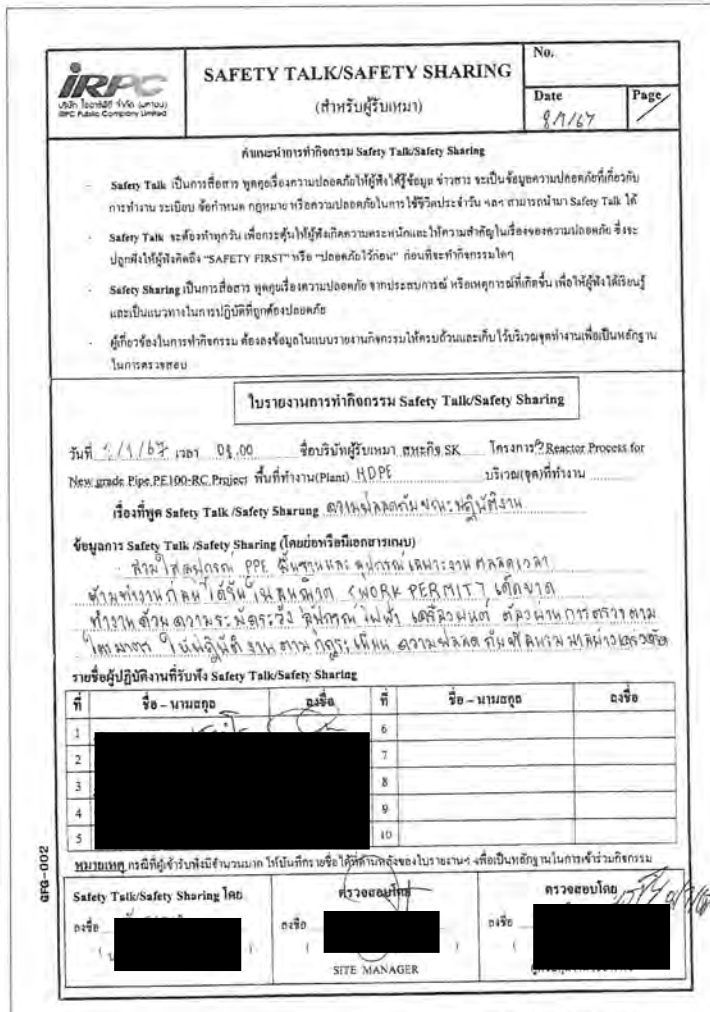 IRPC
บริษัท ไออาร์พีซี จำกัด (มหาชน)
IRPC Public Company Limited
SAFETY TALK/SAFETY SHARING
(สำหรับผู้รับเหมา)
No.
Date
8/1/67
Page
คำแนะนำการทำกิจกรรม Safety Talk/Safety Sharing
- Safety Talk เป็นการสื่อสาร พูดคุยเรื่องความปลอดภัยให้ผู้ฟังได้รู้ข้อมูล ข่าวสาร จะเป็นข้อมูลความปลอดภัยที่เกี่ยวกับ
การทำงาน ระเบียบ ข้อกำหนด กฎหมาย หรือความปลอดภัยในการใช้ชีวิตประจำวัน ฯลฯ สามารถนำมา Safety Talk ได้
- Safety Talk จะต้องทำทุกวัน เพื่อกระตุ้นให้ผู้ฟังเกิดความตระหนักและให้ความสำคัญในเรื่องของความปลอดภัย ซึ่งจะ
ปลูกฝังให้ผู้ฟังคิดถึง "SAFETY FIRST" หรือ "ปลอดภัยไว้ก่อน" ก่อนที่จะทำกิจกรรมใดๆ
- Safety Sharing เป็นการสื่อสาร พูดคุยเรื่องความปลอดภัย จากประสบการณ์ หรือเหตุการณ์ที่เกิดขึ้น เพื่อให้ผู้ฟังได้เรียนรู้
และเป็นแนวทางในการปฏิบัติที่ถูกต้องปลอดภัย
- ผู้เกี่ยวข้องในการทำกิจกรรม ต้องลงข้อมูลในแบบรายงานกิจกรรมให้ครบถ้วนและเก็บไว้บริเวณจุดทำงานเพื่อเป็นหลักฐาน
ในการตรวจสอบ
ใบรายงานการทำกิจกรรม Safety Talk/Safety Sharing
วันที่ /1/67 เวลา 08.00 ชื่อบริษัทผู้รับเหมา สหะกิจ SK โครงการ Reactor Process for
New grade Pipe PE100-RC Project พื้นที่ทำงาน(Plant) HDPE บริเวณ(จุด)ที่ทำงาน
เรื่องที่พูด Safety Talk /Safety Sharung ความปลอดภัยขณะปฏิบัติงาน
ข้อมูลการ Safety Talk /Safety Sharing (โดยย่อหรือมีเอกสารแนบ)
สวมใส่อุปกรณ์ PPE พื้นฐานและอุปกรณ์เฉพาะงานตลอดเวลา
ห้ามทำงานก่อนได้รับใบอนุญาต (WORK PERMIT) เด็ดขาด
ทำงานด้วยความระมัดระวัง อุปกรณ์ไฟฟ้า เครื่องยนต์ ต้องผ่านการตรวจตาม
ไตรมาส ให้ปฏิบัติงานตามกฎระเบียบ ความปลอดภัย อย่างเคร่งครัด
รายชื่อผู้ปฏิบัติงานที่รับฟัง Safety Talk/Safety Sharing
ที่ ชื่อ – นามสกุล ลงชื่อ ที่ ชื่อ – นามสกุล ลงชื่อ
1 6
2 7
3 8
4 9
5 10
หมายเหตุ กรณีที่ผู้เข้ารับฟังมีจำนวนมาก ให้บันทึกรายชื่อได้ที่ด้านหลังของใบรายงานฯ เพื่อเป็นหลักฐานในการเข้าร่วมกิจกรรม
GFG-002
Safety Talk/Safety Sharing โดย ตรวจสอบโดย ตรวจสอบโดย
ลงชื่อ ลงชื่อ ลงชื่อ
SITE MANAGER